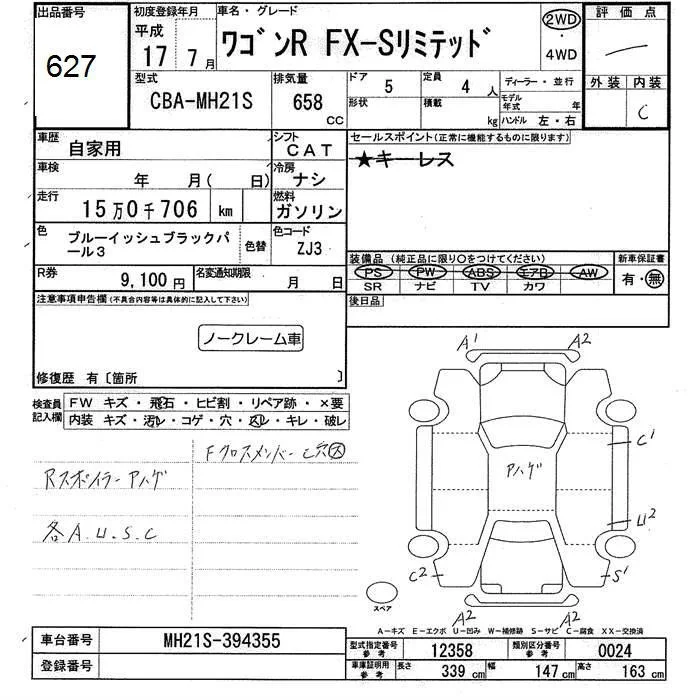 出品番号 627
初度登録年月 平成 17年 7月
車名・グレード ワゴンR FX-Sリミテッド
2WD・4WD
評価点 ―
外装 内装 C
型式 CBA-MH21S
排気量 658 CC
ドア 5
形状
定員 4 人
積載 kg
ディーラー・並行
モデル年式 年
ハンドル 左・右
車歴 自家用
シフト CAT
車検 年 月( 日)
冷房 ナシ
走行 15万0千706 km
燃料 ガソリン
色 ブルーイッシュブラックパール3
色替
色コード ZJ3
R券 9,100円
名変通知期限 月 日
セールスポイント(正常に機能するものに限ります)
★キーレス
装備品 (純正品に限り○をつけてください)
PS PW ABS エアB AW
SR ナビ TV カワ
新車保証書
有・無
後日品
注意事項申告欄(不具合内容等は具体的に記入して下さい)
ノークレーム車
修復歴 有〔箇所 〕
検査員記入欄
FW キズ・飛石・ヒビ割・リペア跡・×要
内装 キズ・汚レ・コゲ・穴・スレ・キレ・破レ
Fクロスメンバーし穴大
Rスポイラー Aハゲ
各A.U.S.C
A1 A2
C1
Aハゲ
U2
C2 S1
スペア
A2 A2
A-キズ E-エクボ U-凹み W-補修跡 S-サビ C-腐食 XX-交換済
車台番号 MH21S-394355
登録番号
型式指定番号 参考 12358
類別区分番号 参考 0024
車庫証明用 参考 長さ 339 cm 幅 147 cm 高さ 163 cm